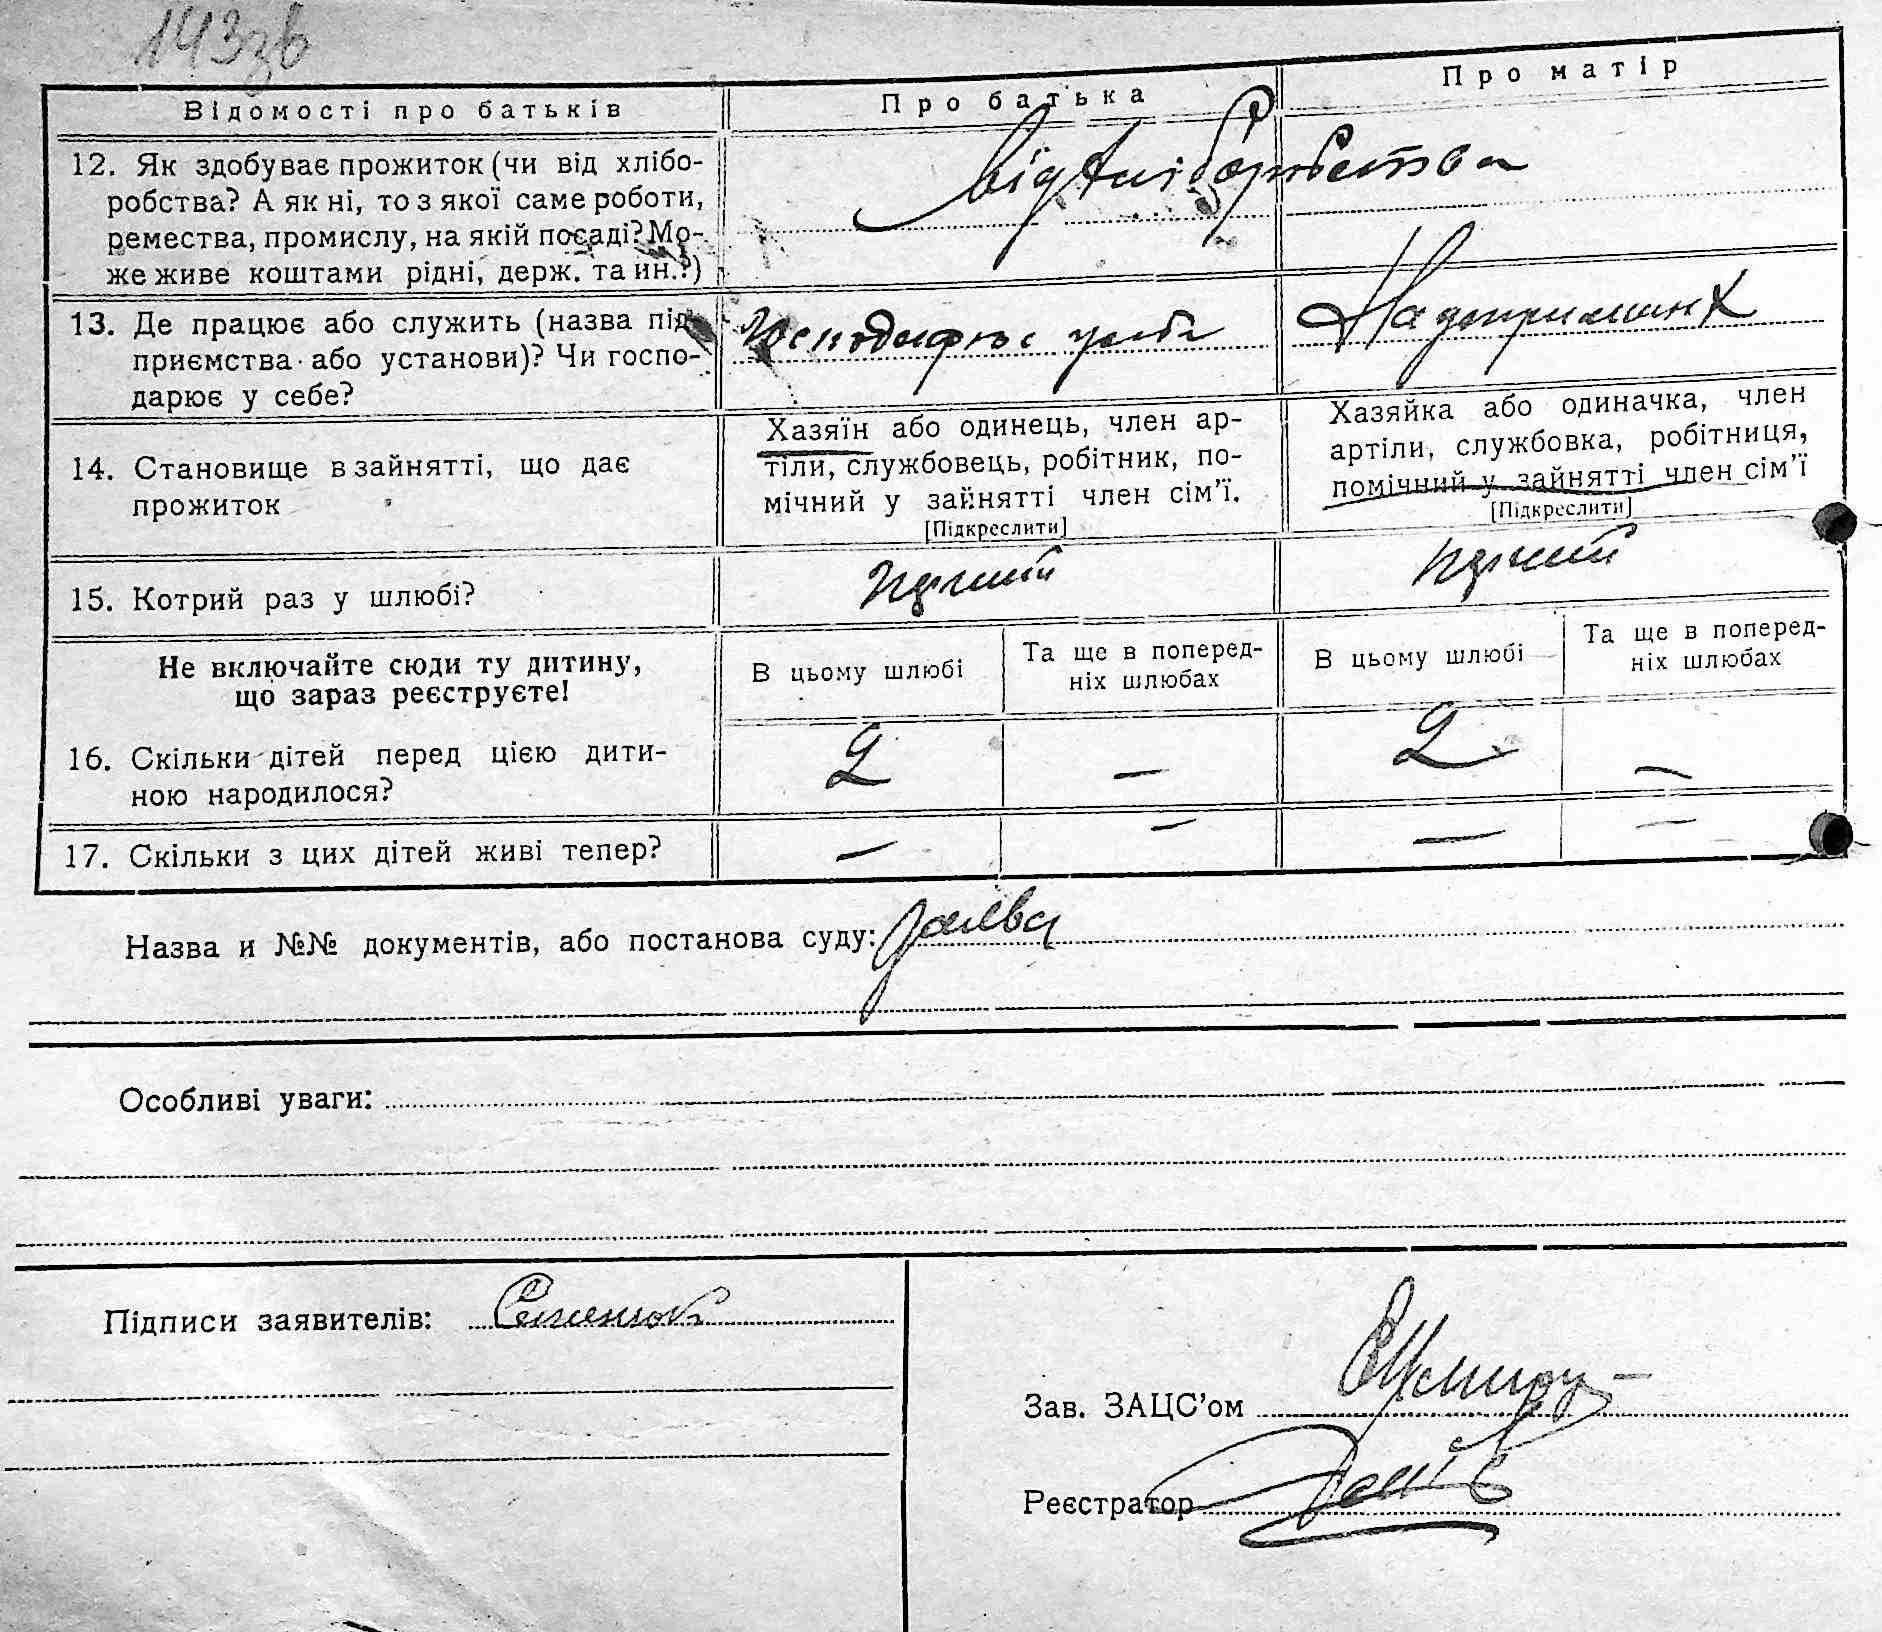 143зв
Відомості про батьків
Про батька
Про матір
12. Як здобуває прожиток (чи від хлібо-
робства? А як ні, то з якої саме роботи,
ремества, промислу, на якій посаді? Мо-
же живе коштами рідні, держ. та ин.?)
від хліборобства
13. Де працює або служить (назва під-
приємства або установи)? Чи госпо-
дарює у себе?
На утриманні
14. Становище в зайнятті, що дає
прожиток
Хазяїн або одинець, член ар-
тіли, службовець, робітник, по-
мічний у зайнятті член сім'ї.
[Підкреслити]
Хазяйка або одиначка, член
артіли, службовка, робітниця,
помічний у зайнятті член сім'ї
[Підкреслити]
15. Котрий раз у шлюбі?
перший
перший
Не включайте сюди ту дитину,
що зараз реєструєте!
В цьому шлюбі
Та ще в поперед-
ніх шлюбах
В цьому шлюбі
Та ще в поперед-
ніх шлюбах
16. Скільки дітей перед цією дити-
ною народилося?
2 — 2 —
17. Скільки з цих дітей живі тепер?
— — — —
Назва и №№ документів, або постанова суду: заява
Особливі уваги:
Підписи заявителів: Семенюк
Зав. ЗАЦС'ом
Реєстратор